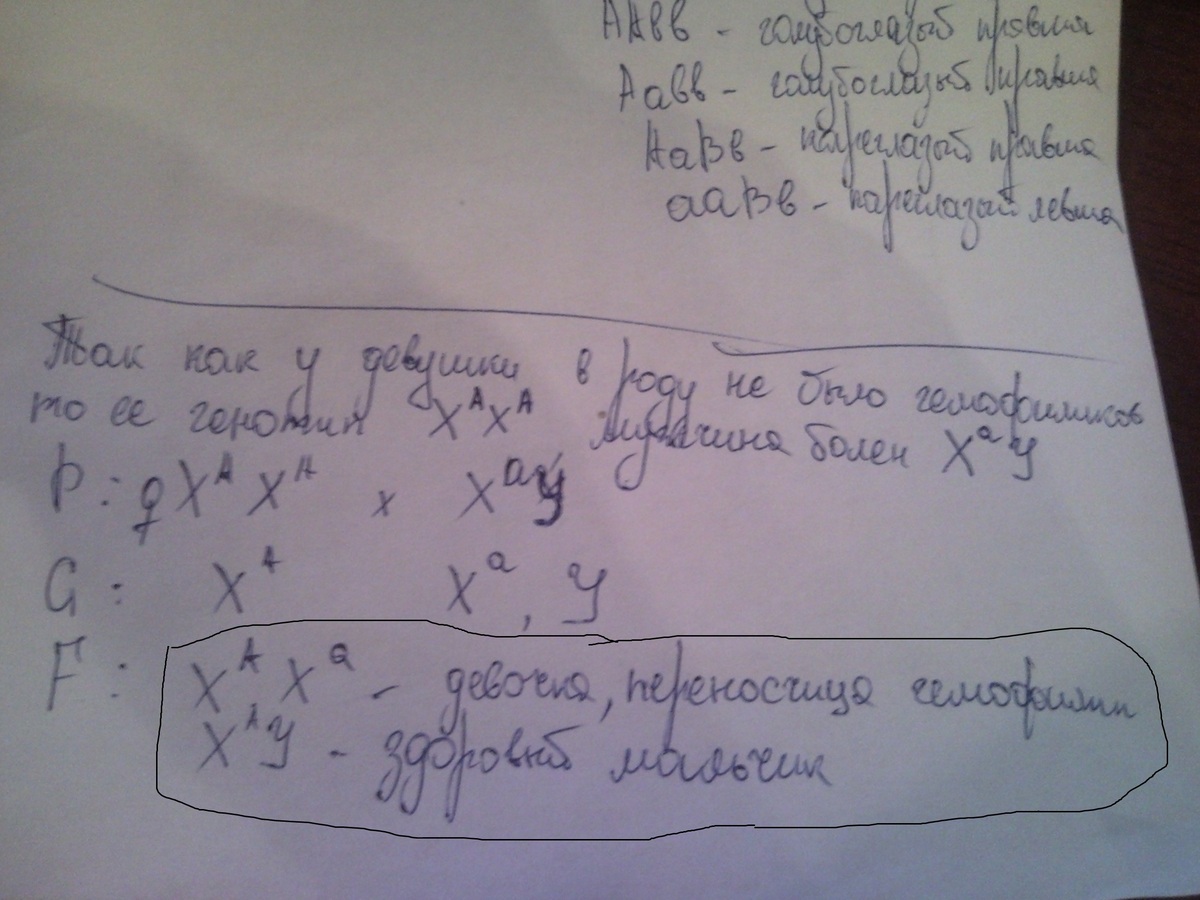 AABB - голубоглазый правша
Aaвв - голубоглазый правша
AaBв - кареглазый правша
aaBв - кареглазый левша
Так как у девушки в роду не было гемофиликов
то ее генотип X^A X^A мужчина болен X^a У
P: ♀ X^A X^A x X^a У
G: X^A X^a, У
F: X^A X^a - девочка, переносчица гемофилии
X^A У - здоровый мальчик